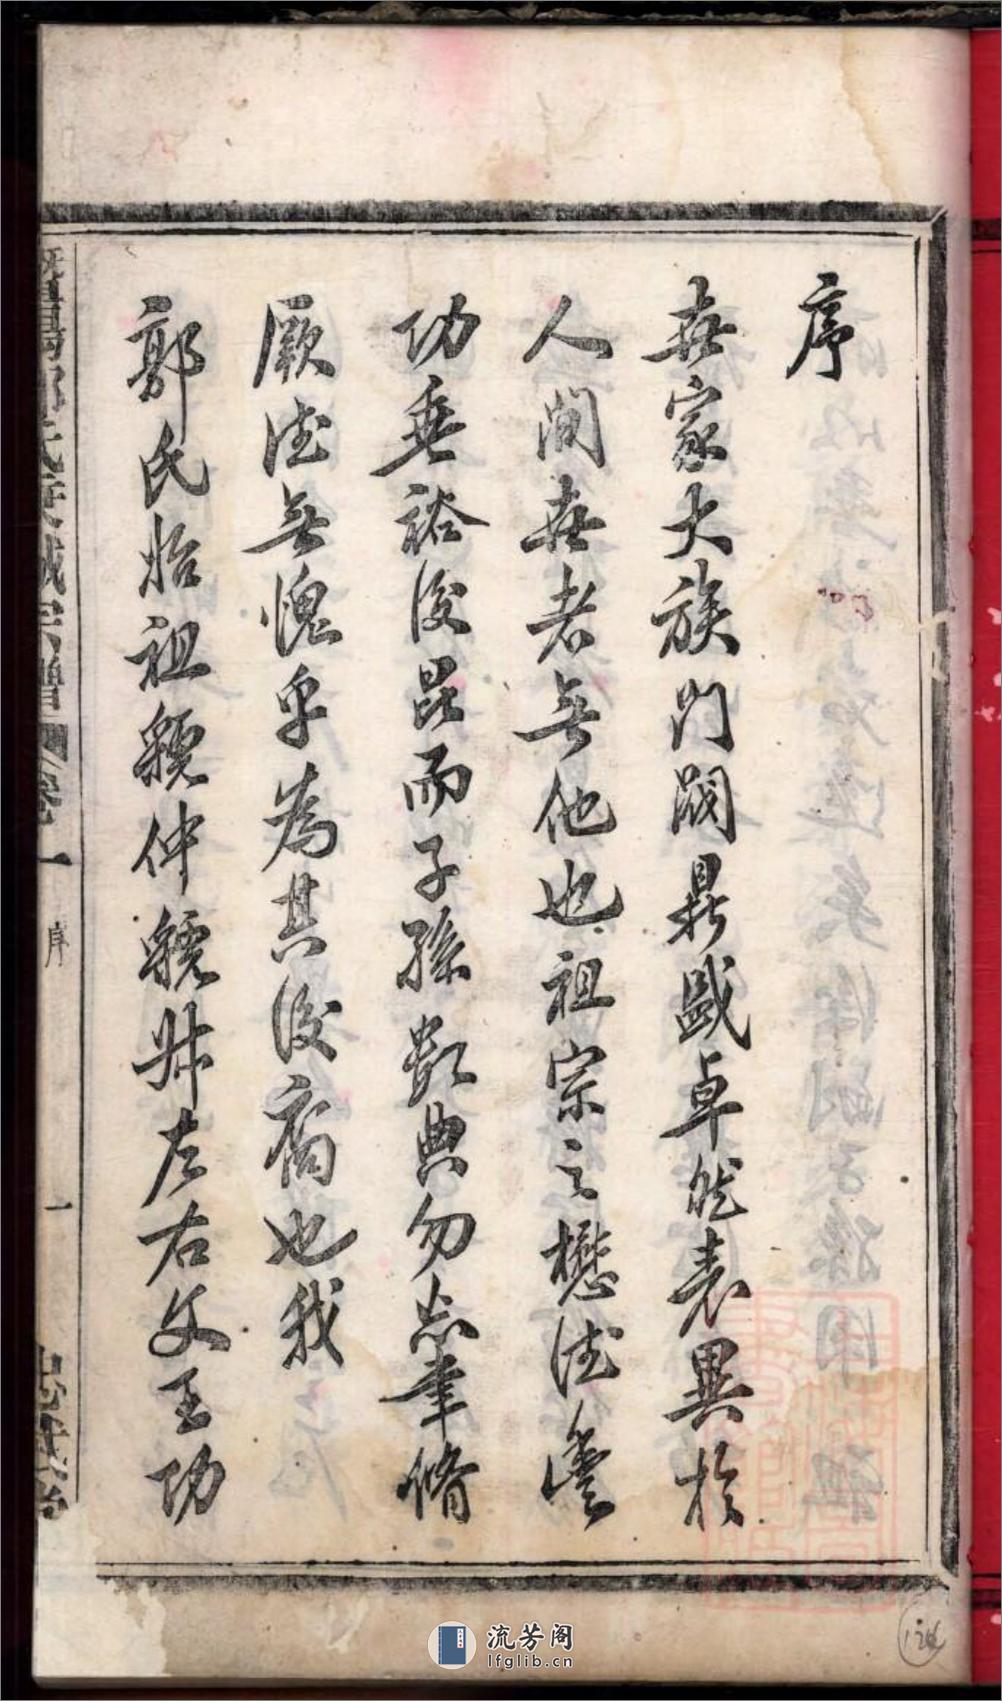 序
世家大族門閥鼎盛卓然表異於
人間世者無他也祖宗之懋德豐
功垂裕後昆而子孫數典勿忘聿脩
厥德無愧乎為其後裔也我
郭氏始祖虢仲虢叔左右文王功
郭氏
宗譜
卷一
序
一
流芳阁
lfglib.cn